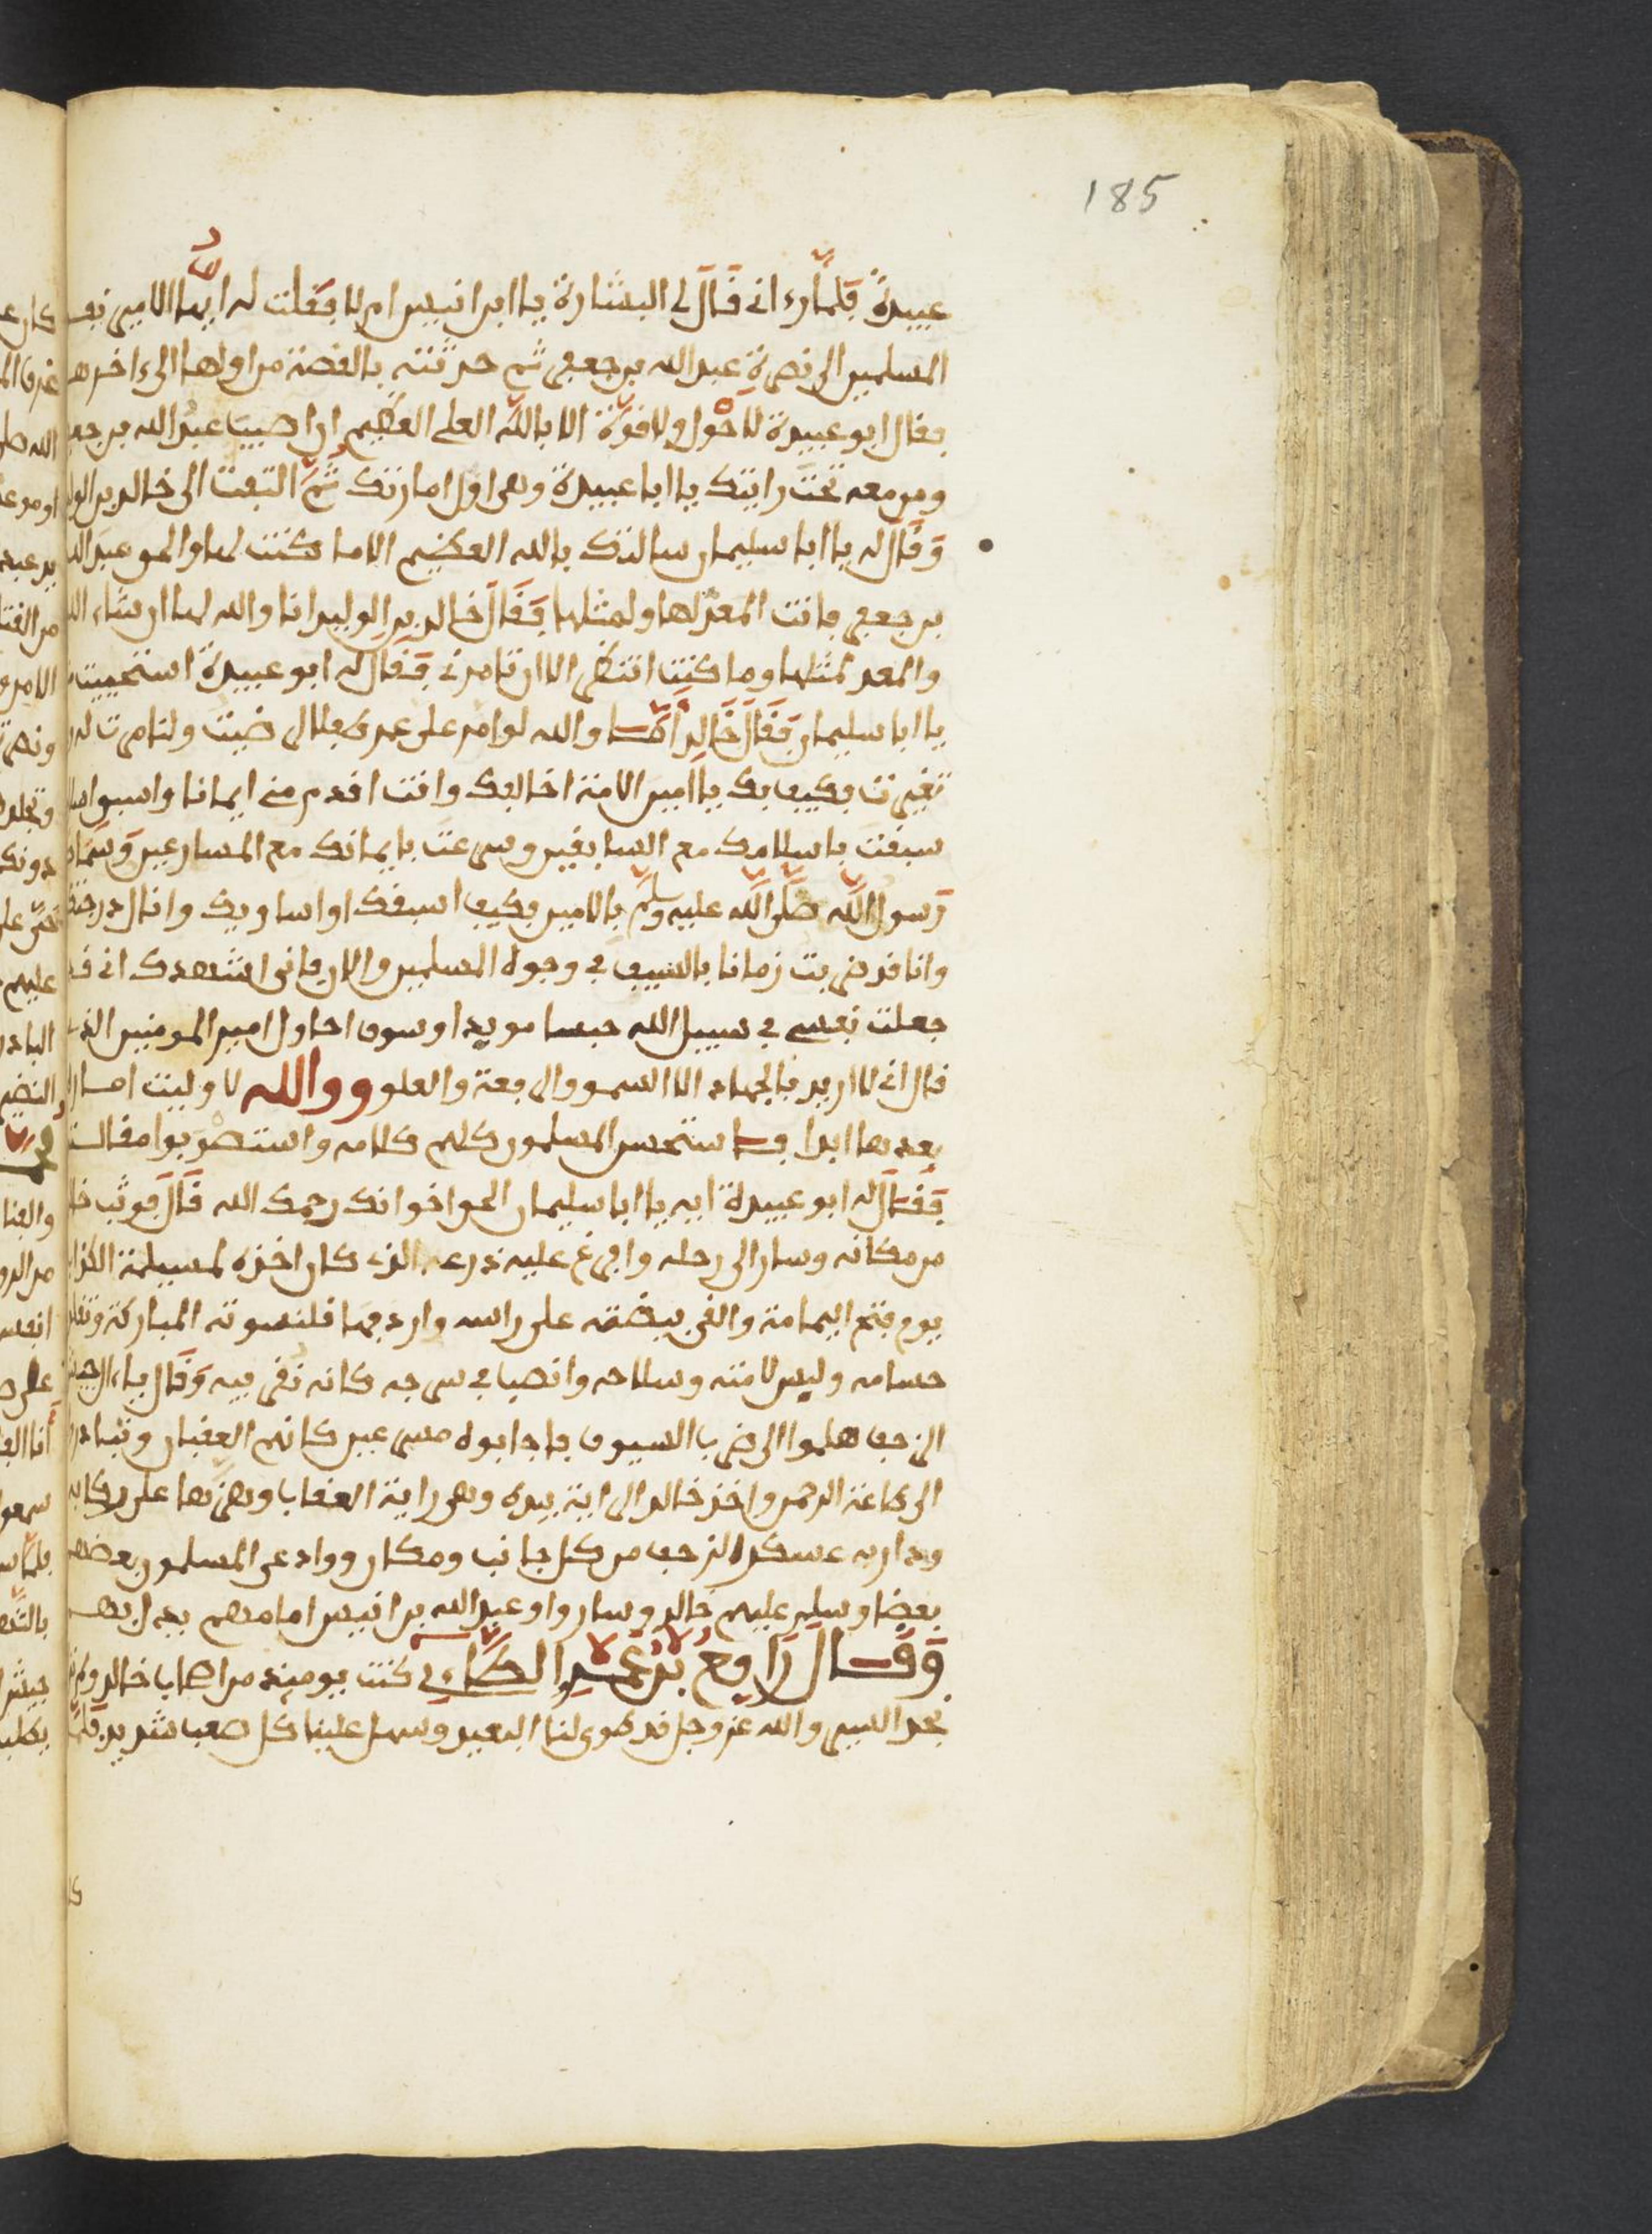 185
عبيدة فلما رءاني قال لي البشارة يا ابن انيس ام لا فقلت له ايها الامير نفذ
المسلمين الى نصرة عبد الله بن جعفر ثم حدثته بالقصة من اولها الى ءاخرها
فقال ابو عبيدة لا حول ولا قوة الا بالله العلي العظيم ان اصيب عبد الله بن جعفر
ومن معه تحت رايتك يا ابا عبيدة وهي اول امارتك ثم التفت الى خالد بن الوليد
وقال له يا ابا سليمان سالتك بالله العظيم الا ما كنت لها والحق عبد الله
بن جعفر فانت المعد لها ولمثلها فقال خالد بن الوليد انا والله لها ان شاء الله
والمعد لمثلها وما كنت انتظر الا ان تامرني فقال له ابو عبيدة استحييت
يا ابا سليمان فقال خالد اما والله لو امر علي عمر طفلا لرضيت ولتامرت له
فكيف بك يا امين الامة اخالفك وانت اقدم مني ايمانا واسبق
سبقت باسلامك مع السابقين وسرعت بايمانك مع المسارعين وسماك
رسول الله صلى الله عليه وسلم بالامين فكيف اسبقك او اساويك وانال درجتك
وانا قد ضربت زمانا بالسيف في وجوه المسلمين والان فاني اشهدك اني قد
جعلت نفسي في سبيل الله حبسا مويدا وسوف احاول امير المومنين الذي
قال اني لا اريد بالجهاد الا السمو والرفعة والعلو ووالله لا وليت امارة
بعدها ابدا فاستحسن المسلمون كلهم كلامه واستصوبوا مقالته
فقال له ابو عبيدة ايه يا ابا سليمان الحق اخوانك رحمك الله قال فوثب خالد
من مكانه وسار الى رحله وافرغ عليه درعه الذي كان اخذه لمسيلمة الكذاب
يوم فتح اليمامة والقى بيضته على راسه واردفها قلنسوته المباركة وتقلد
حسامه ولبس لامته وسلاحه وانصب في سرجه كانه وقال يا
الزحف هلموا الى ضرب السيوف فاجابوه مسرعين كانهم العقبان وتبادروا
الى طاعة الرحمن واخذ خالد الراية بيده وهي راية العقاب وهزها على ركابه
ودار به عسكر الزحف من كل جانب ومكان ووادعى المسلمون بعضهم
بعضا وسلم عليهم خالد وساروا وعبد الله بن انيس امامهم يدل بهم
وقال رافع بن عميرة الطاءي كنت يوميذ من اصحاب خالد
نجد السير والله عز وجل قد طوى لنا البعيد وسهل علينا كل صعب شديد فلما